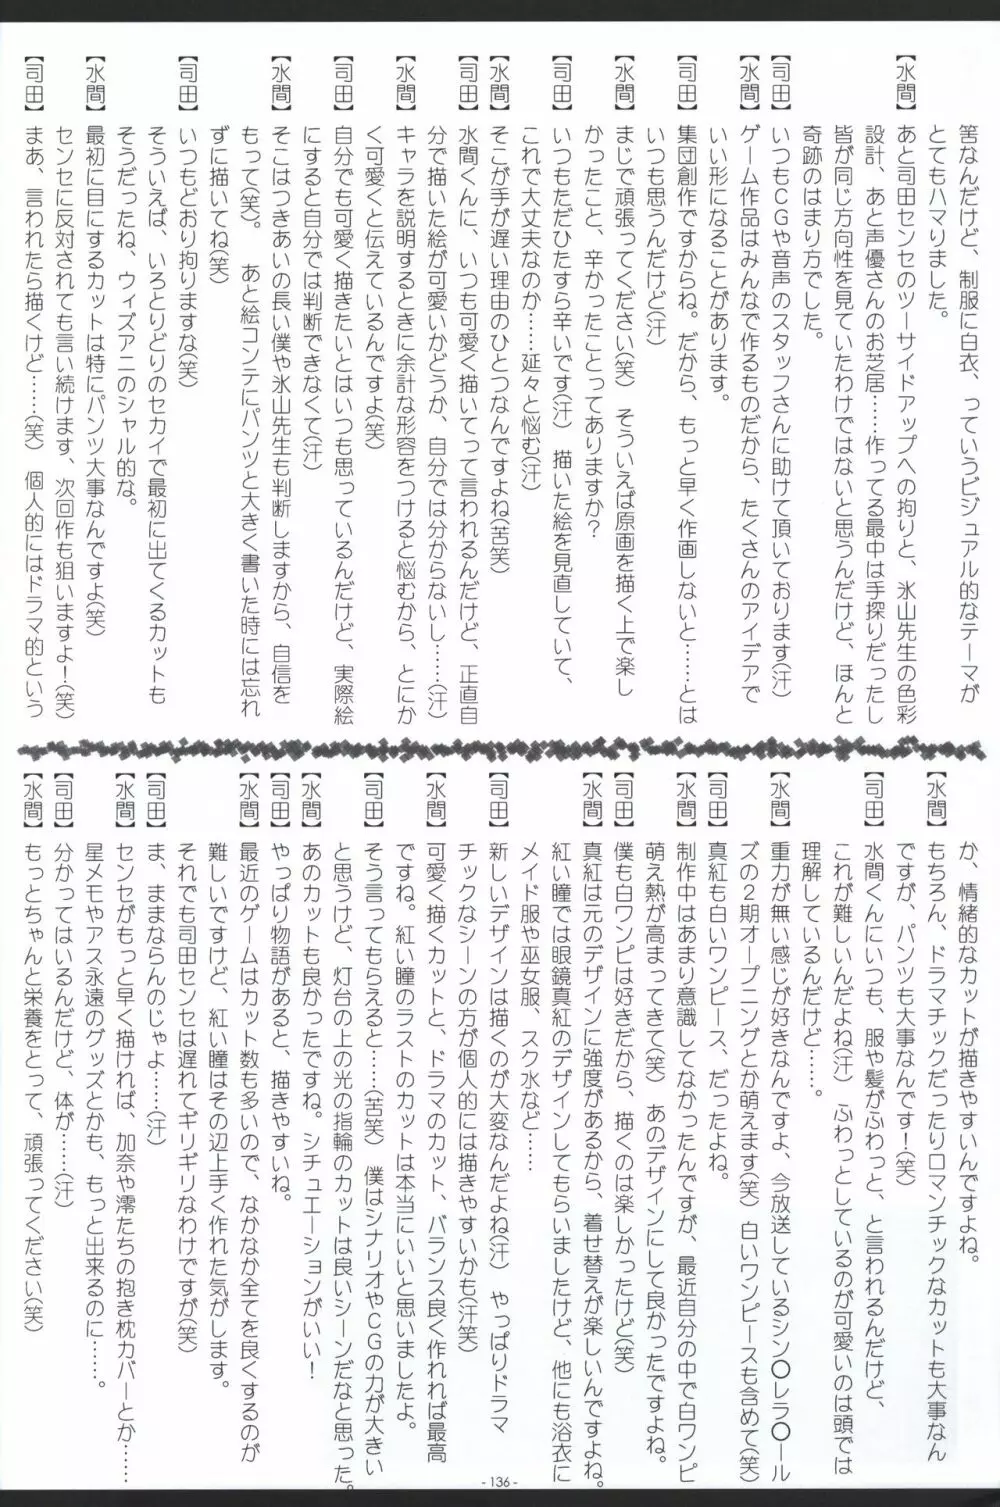 筈なんだけど、制服に白衣、っていうビジュアル的なテーマが
とてもハマりました。
【水間】 あと司田センセのツーサイドアップへの拘りと、氷山先生の色彩
設計、あと声優さんのお芝居……作ってる最中は手探りだったし
皆が同じ方向性を見ていたわけではないと思うんだけど、ほんと
奇跡のはまり方でした。
【司田】 いつもCGや音声のスタッフさんに助けて頂いております(汗)
【水間】 ゲーム作品はみんなで作るものだから、たくさんのアイデアで
いい形になることがあります。
【司田】 集団創作ですからね。だから、もっと早く作画しないと……とは
いつも思うんだけど(汗)
【水間】 まじで頑張ってください(笑) そういえば原画を描く上で楽し
かったこと、辛かったことってありますか？
【司田】 いつもただひたすら辛いです(汗) 描いた絵を見直していて、
これで大丈夫なのか……延々と悩む(汗)
【水間】 そこが手が遅い理由のひとつなんですよね(苦笑)
【司田】 水間くんに、いつも可愛く描いてって言われるんだけど、正直自
分で描いた絵が可愛いかどうか、自分では分からないし……(汗)
【水間】 キャラを説明するときに余計な形容をつけると悩むから、とにか
く可愛くと伝えているんですよ(笑)
【司田】 自分でも可愛く描きたいとはいつも思っているんだけど、実際絵
にすると自分では判断できなくて(汗)
【水間】 そこはつきあいの長い僕や氷山先生も判断しますから、自信を
もって(笑)。 あと絵コンテにパンツと大きく書いた時には忘れ
ずに描いてね(笑)
【司田】 いつもどおり拘りますな(笑)
そういえば、いろとりどりのセカイで最初に出てくるカットも
そうだったね、ウィズアニのシャル的な。
【水間】 最初に目にするカットは特にパンツ大事なんですよ(笑)
センセに反対されても言い続けます、次回作も狙いますよ！(笑)
【司田】 まあ、言われたら描くけど……(笑) 個人的にはドラマ的という
か、情緒的なカットが描きやすいんですよね。
【水間】 もちろん、ドラマチックだったりロマンチックなカットも大事なん
ですが、パンツも大事なんです！(笑)
【司田】 水間くんにいつも、服や髪がふわっと、と言われるんだけど、
これが難しいんだよね(汗) ふわっとしているのが可愛いのは頭では
理解しているんだけど……。
【水間】 重力が無い感じが好きなんですよ、今放送しているシン〇レラ〇ール
ズの2期オープニングとか萌えます(笑) 白いワンピースも含めて(笑)
【司田】 真紅も白いワンピース、だったよね。
【水間】 制作中はあまり意識してなかったんですが、最近自分の中で白ワンピ
萌え熱が高まってきて(笑) あのデザインにして良かったですよね。
【司田】 僕も白ワンピは好きだから、描くのは楽しかったけど(笑)
【水間】 真紅は元のデザインに強度があるから、着せ替えが楽しいんですよね。
紅い瞳では眼鏡真紅のデザインしてもらいましたけど、他にも浴衣に
メイド服や巫女服、スク水など……
【司田】 新しいデザインは描くのが大変なんだよね(汗) やっぱりドラマ
チックなシーンの方が個人的には描きやすいかも(汗笑)
【水間】 可愛く描くカットと、ドラマのカット、バランス良く作れれば最高
ですね。紅い瞳のラストのカットは本当にいいと思いましたよ。
【司田】 そう言ってもらえると……(苦笑) 僕はシナリオやCGの力が大きい
と思うけど、灯台の上の光の指輪のカットは良いシーンだなと思った。
【水間】 あのカットも良かったですね。シチュエーションがいい！
【司田】 やっぱり物語があると、描きやすいね。
【水間】 最近のゲームはカット数も多いので、なかなか全てを良くするのが
難しいですけど、紅い瞳はその辺上手く作れた気がします。
それでも司田センセは遅れてギリギリなわけですが(笑)
【司田】 ま、ままならんのじゃよ……(汗)
【水間】 センセがもっと早く描ければ、加奈や澪たちの抱き枕カバーとか……
星メモやアス永遠のグッズとかも、もっと出来るのに……。
【司田】 分かってはいるんだけど、体が……(汗)
【水間】 もっとちゃんと栄養をとって、頑張ってください(笑)
- 136 -